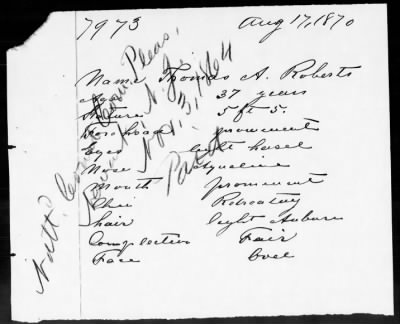 7973
Aug 17, 1870
Name Thomas A. Roberts
Age 37 years
Stature 5 ft 5.
Forehead prominent
Eyes light hazel
Nose aquiline
Mouth prominent
Chin Retreating
hair light Auburn
Complection Fair
Face Oval
Natd. Com Pleas,
N. J.
Nov. 3, 1864